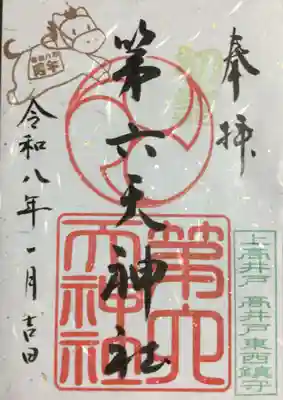 奉拝
第六天神社
令和八年一月吉日
第六天神社
上高井戸 高井戸東西鎮守